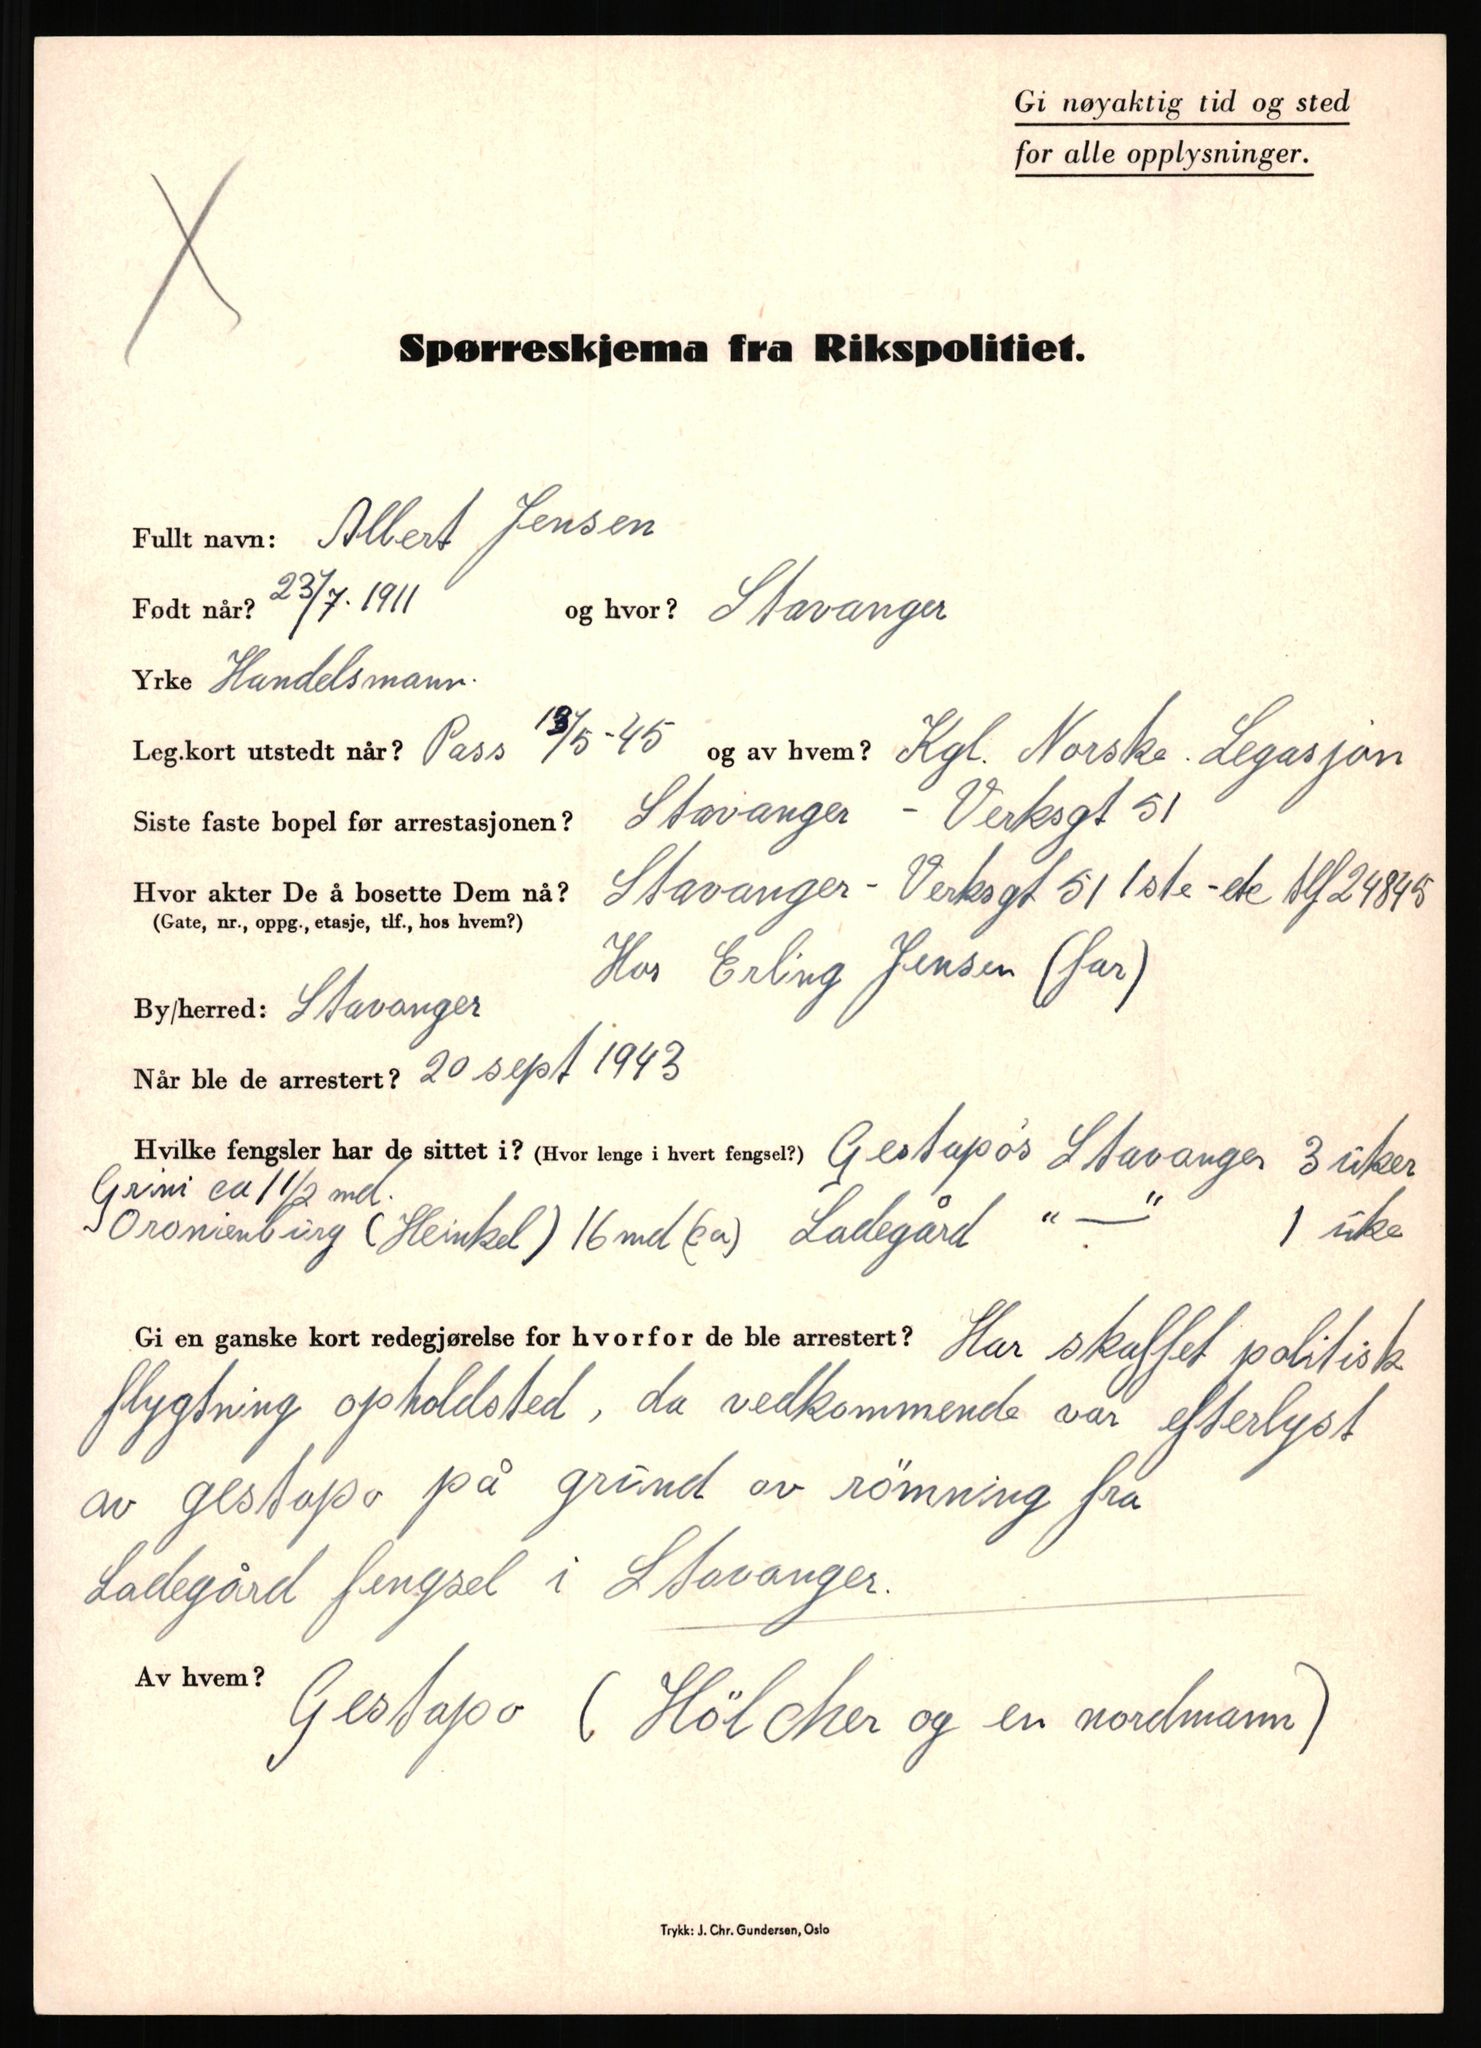 Gi nøyaktig tid og sted
for alle opplysninger.
Spørreskjema fra Rikspolitiet.
Fullt navn: Albert Jensen
Født når? 23/7. 1911 og hvor? Stavanger
Yrke Handelsmann.
Leg.kort utstedt når? Pass /5-45 og av hvem? Kgl. Norske. Legasjon
Siste faste bopel før arrestasjonen? Stavanger - Verksgt 51
Hvor akter De å bosette Dem nå? Stavanger - Verksgt 51 1ste-ete tlf 24845
(Gate, nr., oppg., etasje, tlf., hos hvem?)
Hos Erling Jensen (far)
By/herred: Stavanger
Når ble de arrestert? 20 sept 1943
Hvilke fengsler har de sittet i? (Hvor lenge i hvert fengsel?) Gestapo's Stavanger 3 uker
Grini ca 1 1/2 md.
Oranienburg (Heinkel) 16 md (ca) Ladegård " — " 1 uke
Gi en ganske kort redegjørelse for hvorfor de ble arrestert? Har skaffet politisk
flygtning opholdsted, da vedkommende var efterlyst
av gestapo på grund av römning fra
Ladegård fengsel i Stavanger.
Av hvem? Gestapo (Hölcher og en nordmann)
Trykk: J. Chr. Gundersen, Oslo